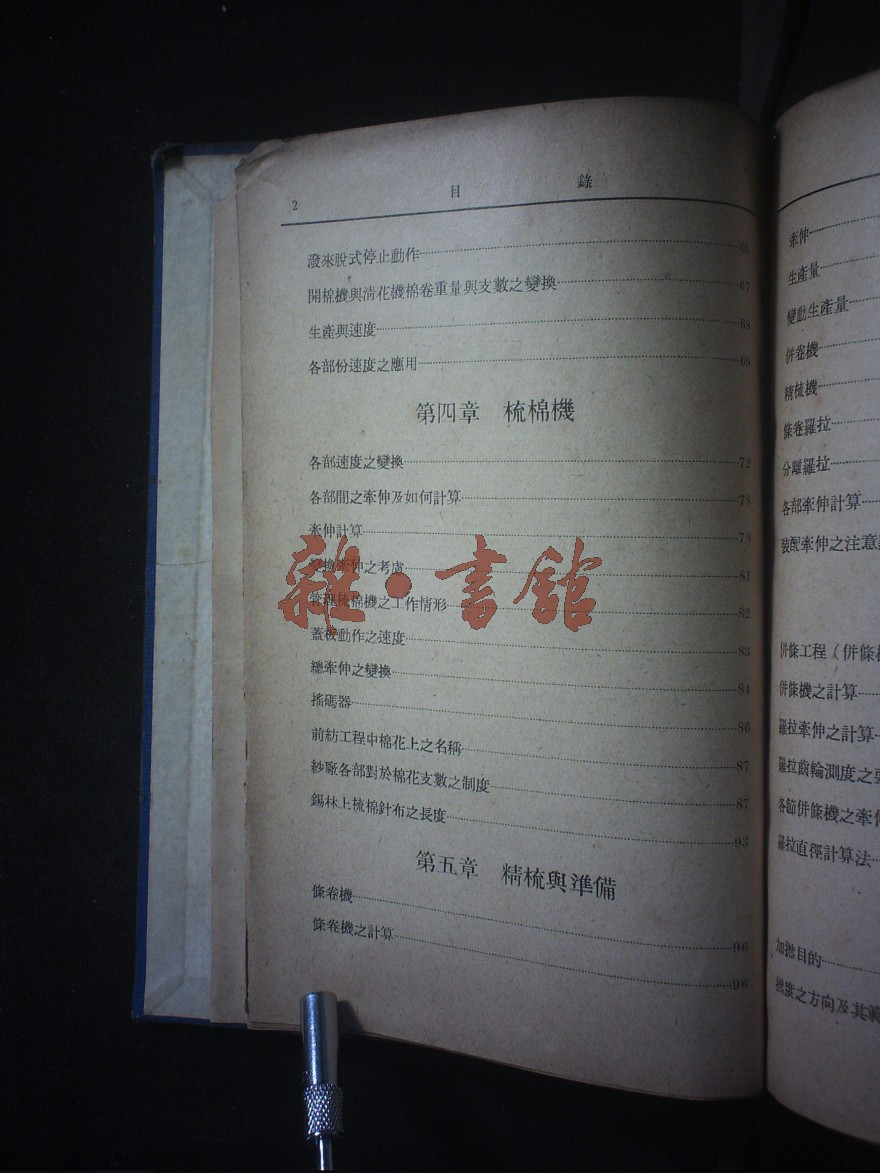 2 目錄
潑來脫式停止動作 66
開棉機與淸花機棉卷重量與支數之變換 67
生產與速度 68
各部份速度之應用 69
第四章 梳棉機
各部速度之變換 72
各部間之牽伸及如何計算 78
牽伸計算 78
變換牽伸之考慮 81
管理梳棉機之工作情形 82
蓋板動作之速度 83
總牽伸之變換 84
搖碼器 86
前紡工程中棉花上之名稱 87
紗廠各部對於棉花支數之制度 87
錫林上梳棉針布之長度 93
第五章 精梳與準備
條卷機 96
條卷機之計算 96
雜·書館
牽伸
生產量
變動生產量
併卷機
精梳機
條卷羅拉
分離羅拉
各部牽伸計算
裝配牽伸之注意
併條工程(併條
併條機之計算
羅拉牽伸之計算
羅拉齒輪測度之
各節併條機之牽伸
羅拉直徑計算法
加撚目的
撚度之方向及其範